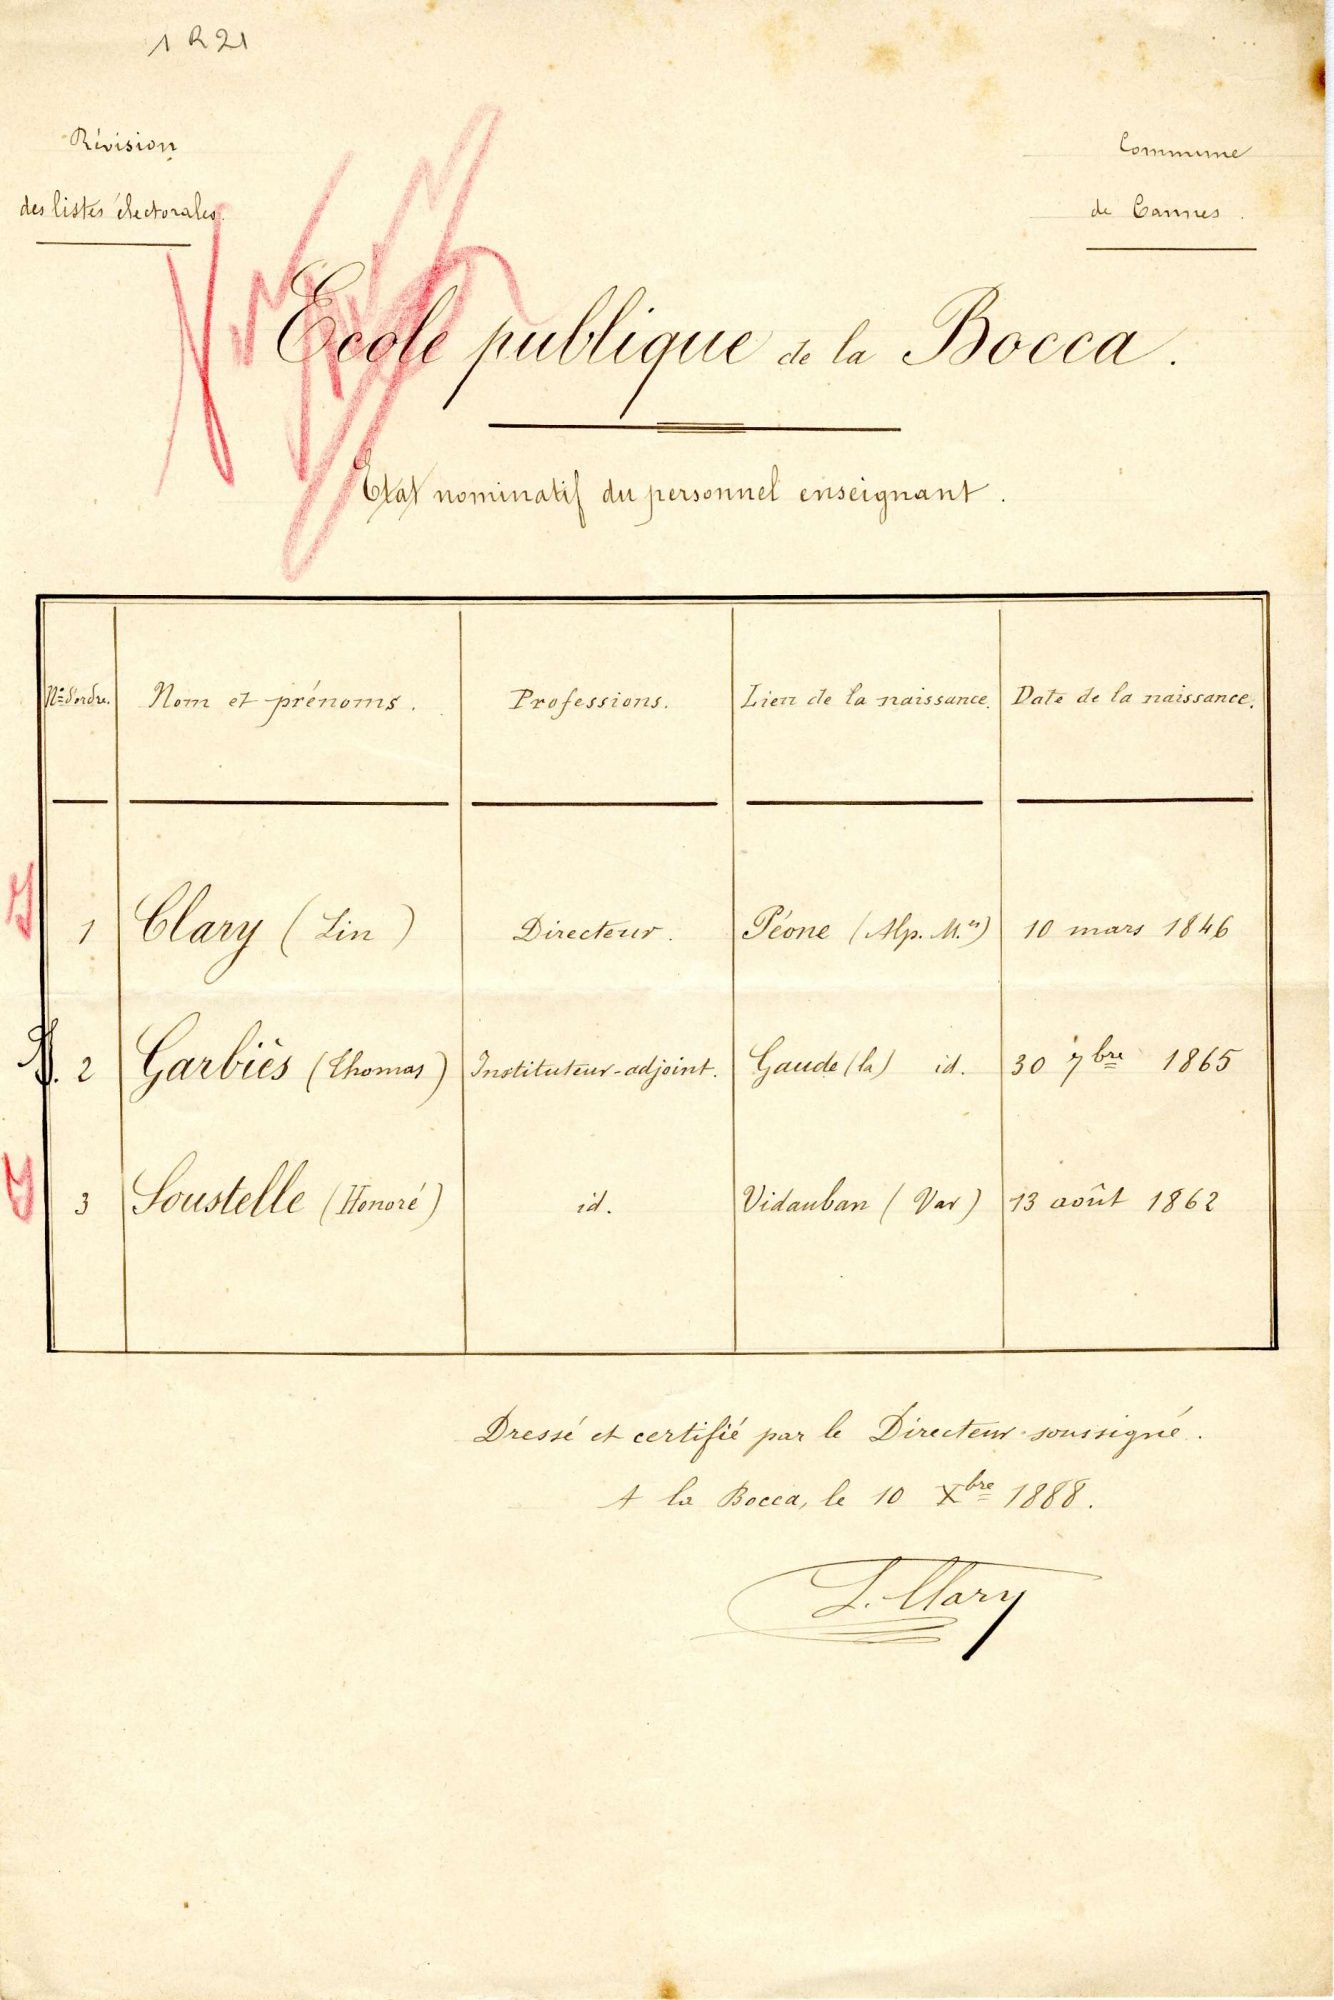 1 R 21
Révision
des listes électorales.
Commune
de Cannes.
Ecole publique de la Bocca.
Etat nominatif du personnel enseignant.
Nos d'ordre. Nom et prénoms. Professions. Lieu de la naissance. Date de la naissance.
1 Clary (Lin) Directeur. Péone (Alp. M.es) 10 mars 1846
2 Garbiès (Thomas) Instituteur-adjoint. Gaude (la) id. 30 7bre 1865
3 Soustelle (Honoré) id. Vidauban (Var) 13 août 1862
Dressé et certifié par le Directeur soussigné.
A la Bocca, le 10 Xbre 1888.
L. Clary